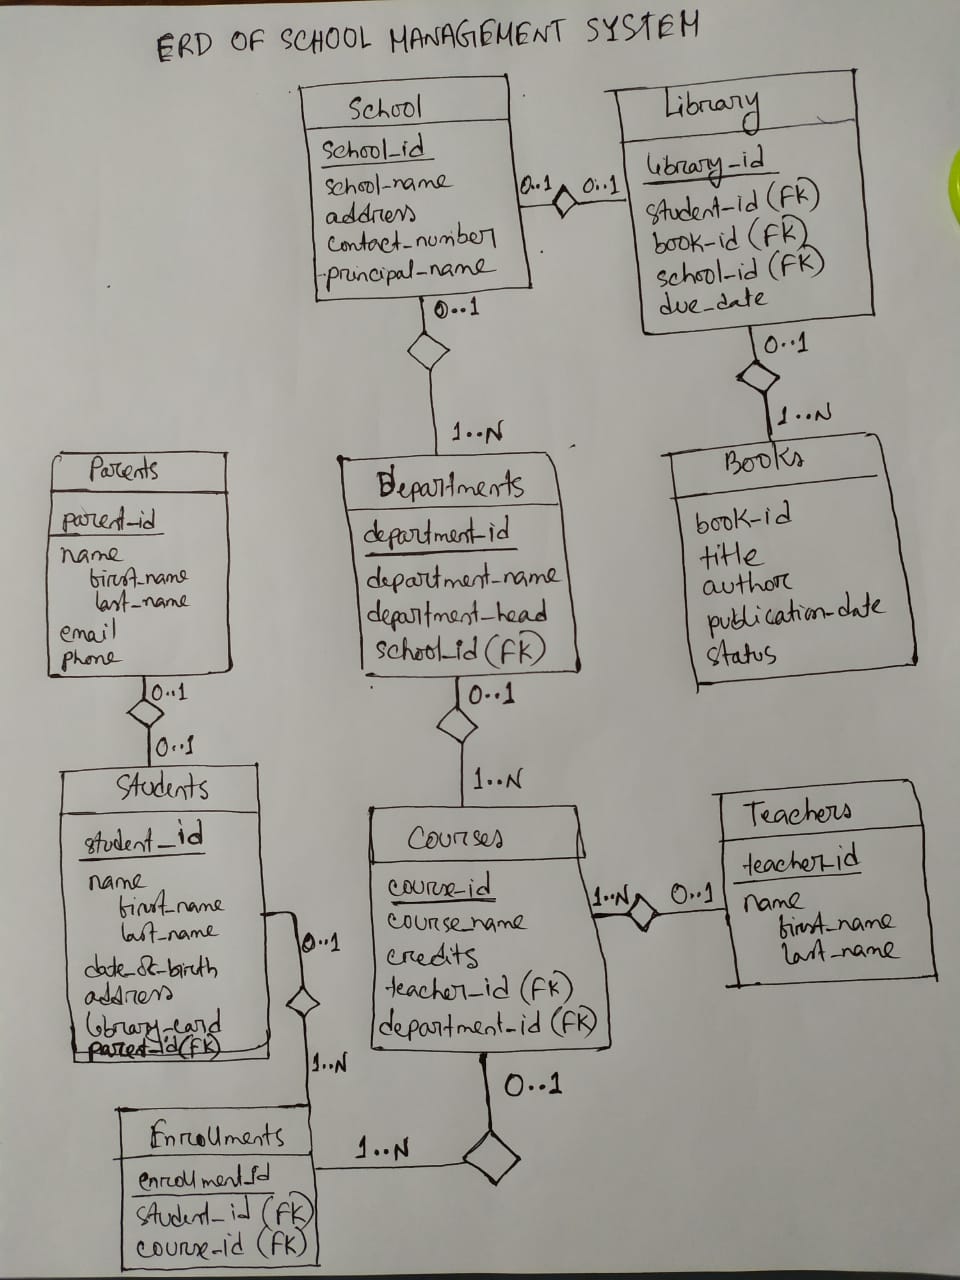 ERD OF SCHOOL MANAGEMENT SYSTEM
School
school_id
school-name
address
contact_number
principal-name
0..1
0..1
Library
library-id
student-id (FK)
book-id (FK)
school-id (FK)
due_date
0..1
1..N
0..1
1..N
Parents
parent-id
name
first-name
last-name
email
phone
0..1
0..1
Departments
department-id
department-name
department-head
school_id (FK)
0..1
1..N
Books
book-id
title
author
publication-date
status
Students
student_id
name
first-name
last-name
date_of-birth
address
library-card
parent-id (FK)
0..1
1..N
Courses
course-id
course_name
credits
teacher-id (FK)
department-id (FK)
1..N
0..1
Teachers
teacher-id
name
first-name
last-name
0..1
1..N
Enrollments
enrollment_id
student-id (FK)
course-id (FK)